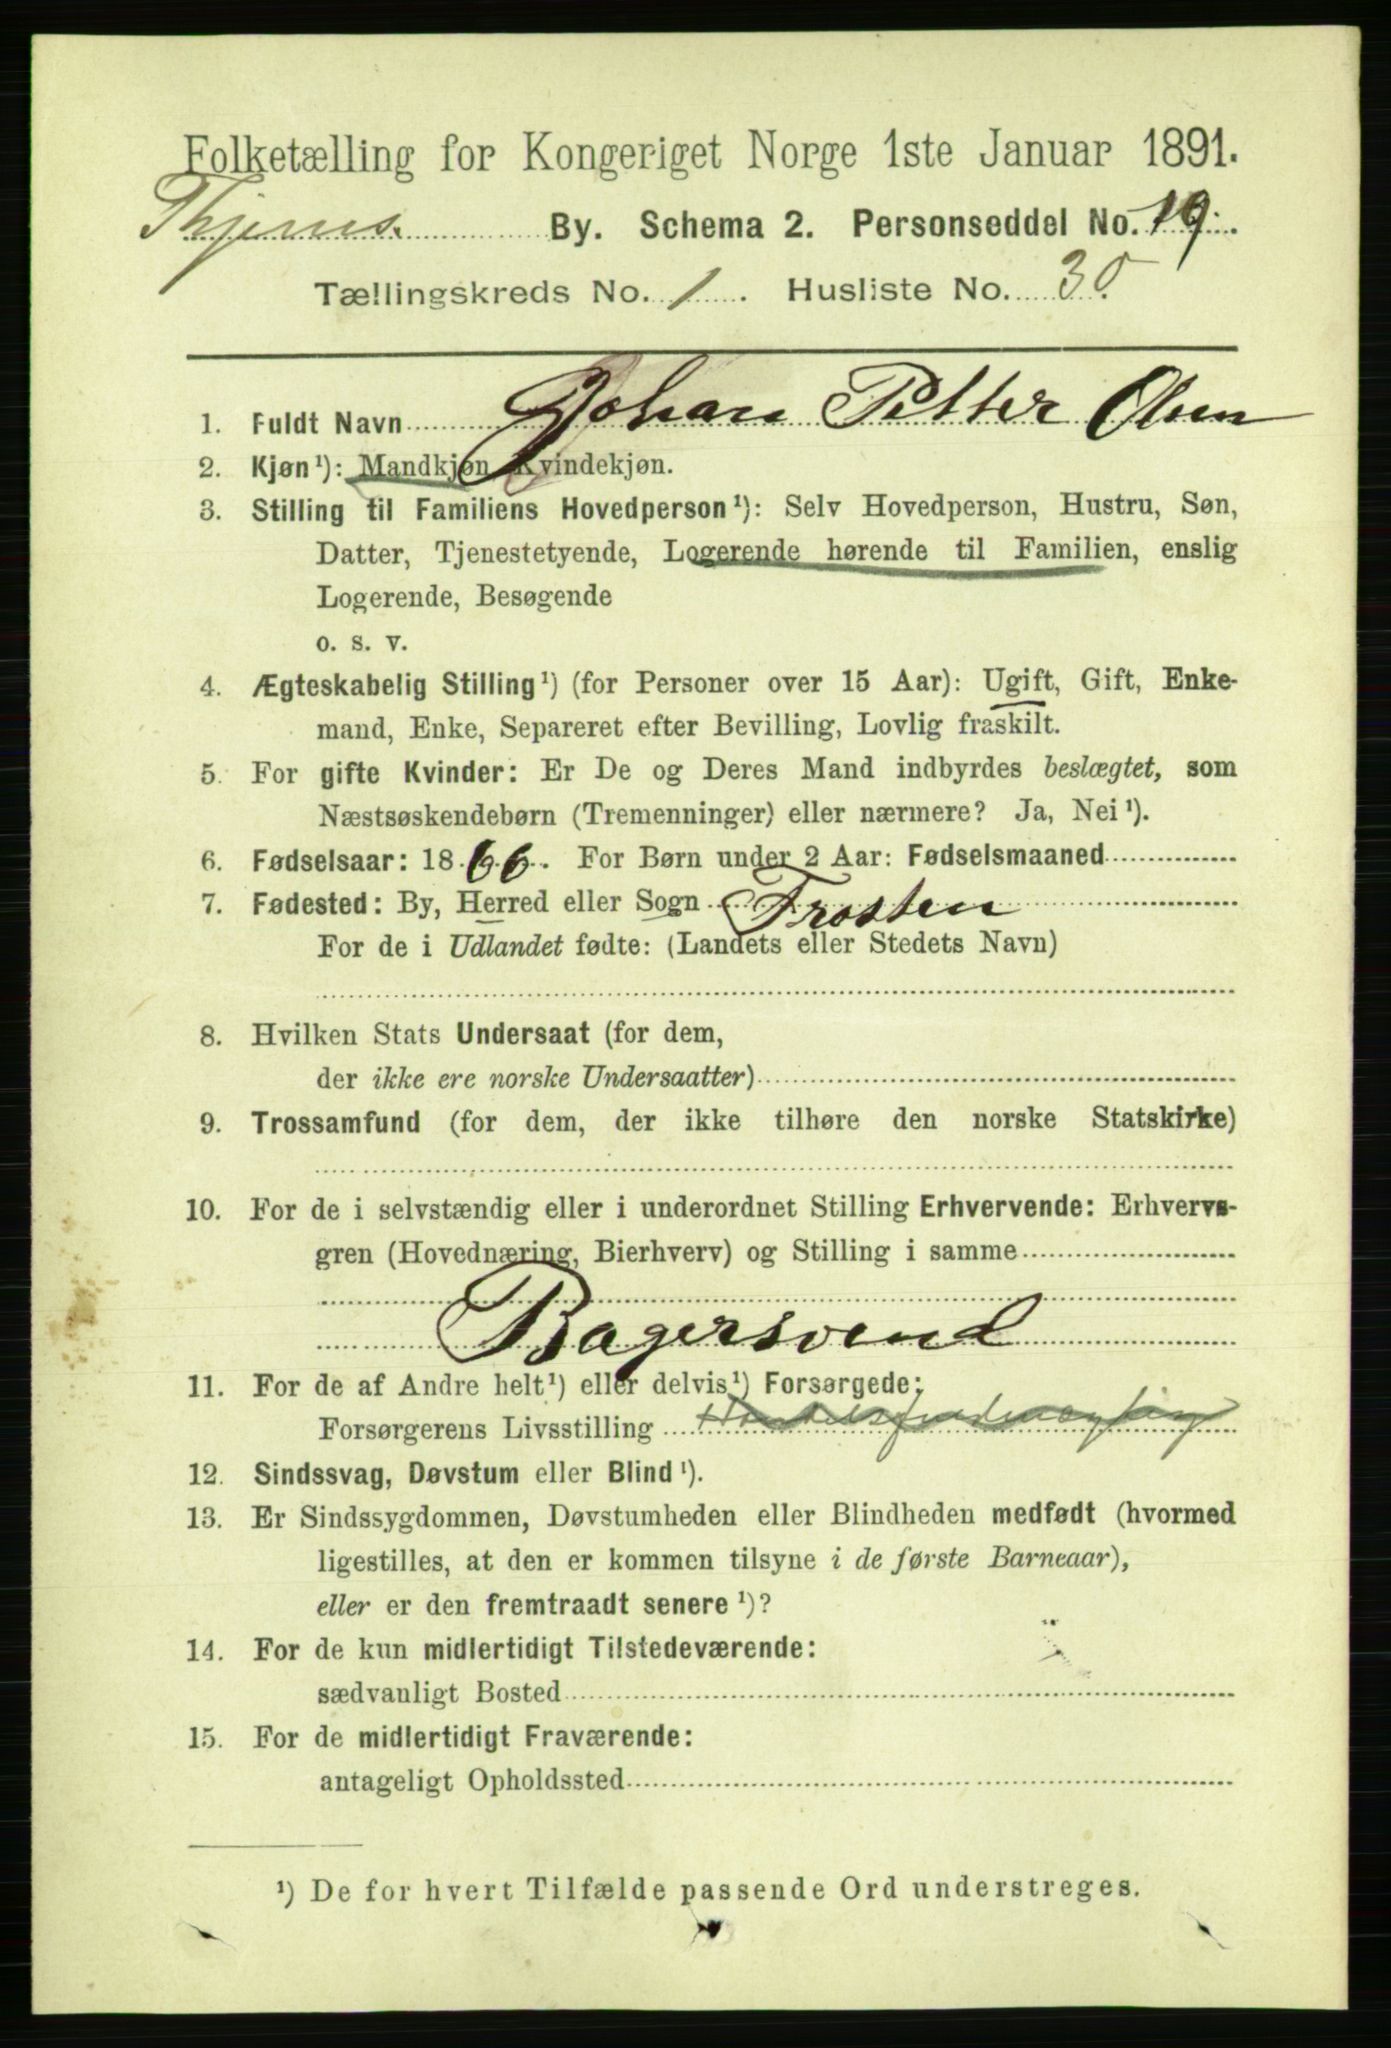 Folketælling for Kongeriget Norge 1ste Januar 1891.
By. Schema 2. Personseddel No. 19.
Tællingskreds No. 1. Husliste No. 30
1. Fuldt Navn Johan Petter Olsen
2. Kjøn¹): Mandkjøn Kvindekjøn.
3. Stilling til Familiens Hovedperson¹): Selv Hovedperson, Hustru, Søn,
Datter, Tjenestetyende, Logerende hørende til Familien, enslig
Logerende, Besøgende
o. s. v.
4. Ægteskabelig Stilling¹) (for Personer over 15 Aar): Ugift, Gift, Enke-
mand, Enke, Separeret efter Bevilling, Lovlig fraskilt.
5. For gifte Kvinder: Er De og Deres Mand indbyrdes beslægtet, som
Næstsøskendebørn (Tremenninger) eller nærmere? Ja, Nei¹).
6. Fødselsaar: 1866. For Børn under 2 Aar: Fødselsmaaned
7. Fødested: By, Herred eller Sogn Frosten
For de i Udlandet fødte: (Landets eller Stedets Navn)
8. Hvilken Stats Undersaat (for dem,
der ikke ere norske Undersaatter)
9. Trossamfund (for dem, der ikke tilhøre den norske Statskirke)
10. For de i selvstændig eller i underordnet Stilling Erhvervende: Erhvervs-
gren (Hovednæring, Bierhverv) og Stilling i samme
Bagersvend
11. For de af Andre helt¹) eller delvis¹) Forsørgede:
Forsørgerens Livsstilling
12. Sindssvag, Døvstum eller Blind¹).
13. Er Sindssygdommen, Døvstumheden eller Blindheden medfødt (hvormed
ligestilles, at den er kommen tilsyne i de første Barneaar),
eller er den fremtraadt senere¹)?
14. For de kun midlertidigt Tilstedeværende:
sædvanligt Bosted
15. For de midlertidigt Fraværende:
antageligt Opholdssted
¹) De for hvert Tilfælde passende Ord understreges.